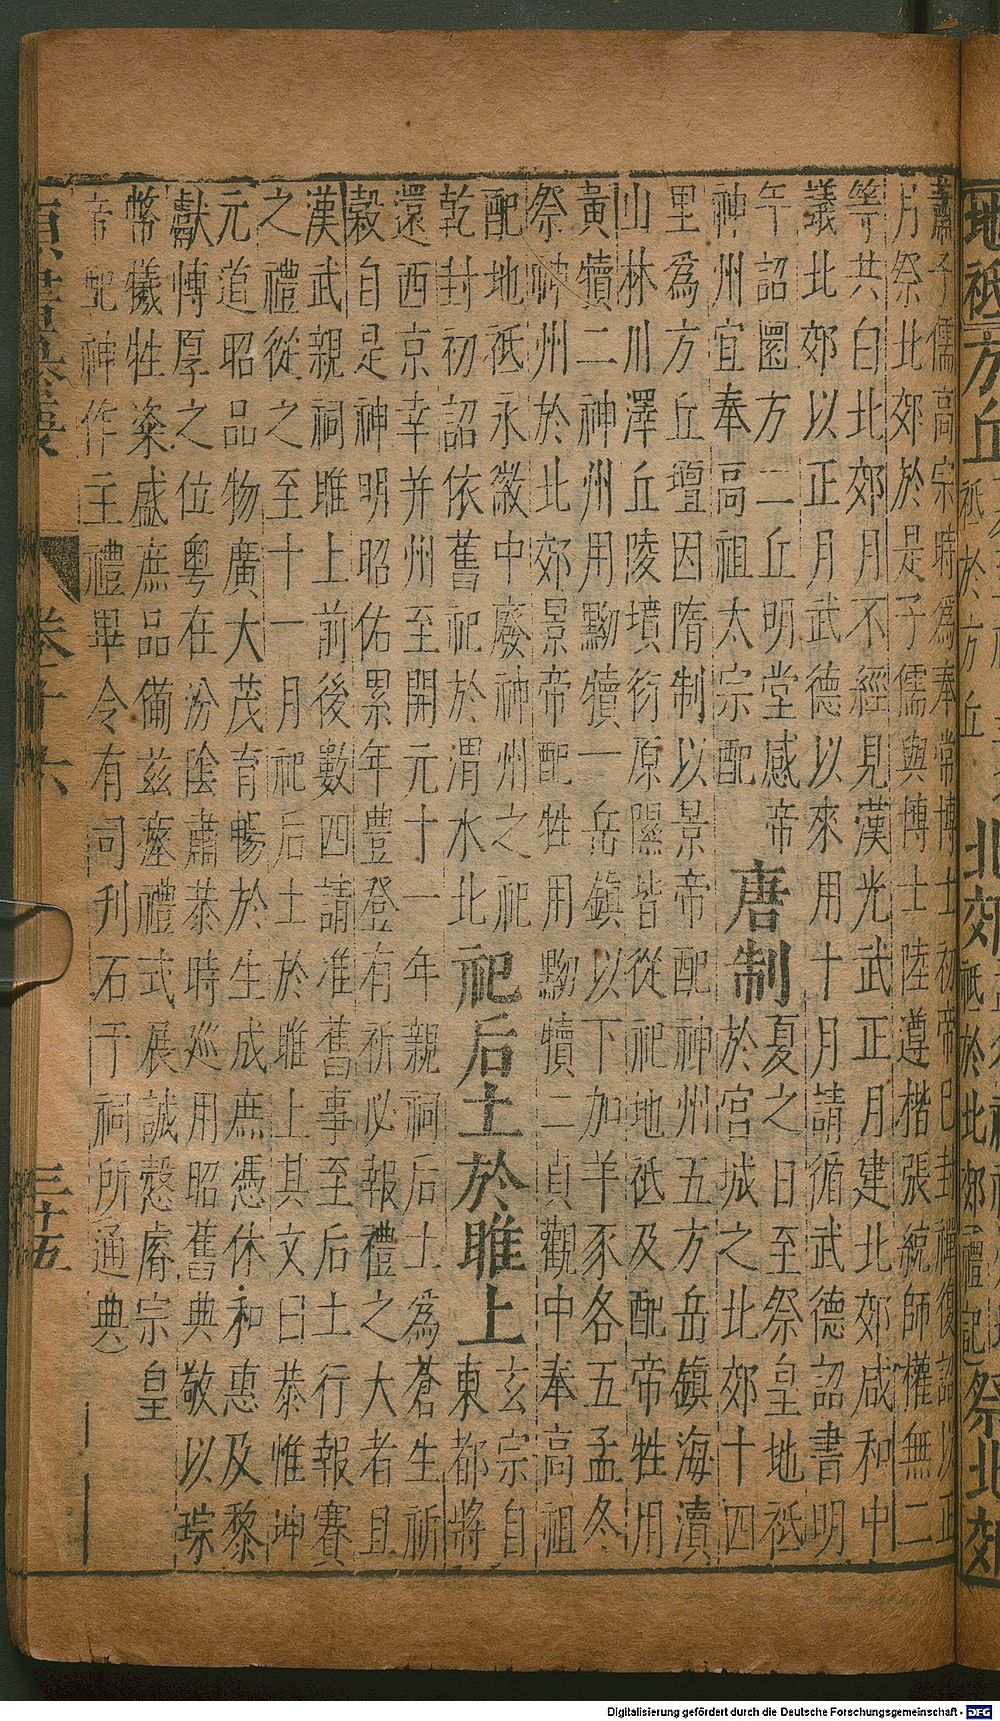 蕭子儒高宗時爲奉常博士初帝已封禪復詔以正
月祭北郊於是子儒與博士陸遵楷張統師權無二
等共白北郊月不經見漢光武正月建北郊咸和中
議北郊以正月武德以來用十月請循武德詔書明
年詔圜方二丘明堂感帝
唐制
夏之日至祭皇地祗
神州宜奉高祖太宗配
於宮城之北郊十四
里爲方丘壇因隋制以景帝配神州五方岳鎮海瀆
山林川澤丘陵墳衍原隰皆從祀地祗及配帝牲用
黃犢二神州用黝犢一岳鎮以下加羊豕各五孟冬
祭神州於北郊景帝配牲用黝犢二貞觀中奉高祖
配地祗永徽中廢神州之祀
祀后土於雎上
玄宗自
乾封初詔依舊祀於渭水北
東都將
還西京幸并州至開元十一年親祠后土爲蒼生祈
穀自是神明昭佑累年豊登有祈必報禮之大者且
漢武親祠雎上前後數四請准舊事至后土行報賽
之禮從之至十一月祀后土於雎上其文曰恭惟坤
元道昭品物廣大茂育暢於生成庶憑休和惠及黎
獻博厚之位粤在汾陰肅恭時巡用昭舊典敬以琮
幣犧牲粢盛庶品備兹瘞禮式展誠慤睿宗皇
帝配神作主禮畢令有司刋石于祠所通典
卷之十六
三十五
地祗
方丘
祗於方丘
北郊
祗於北郊
禮記
祭北郊
Digitalisierung gefördert durch die Deutsche Forschungsgemeinschaft - DFG